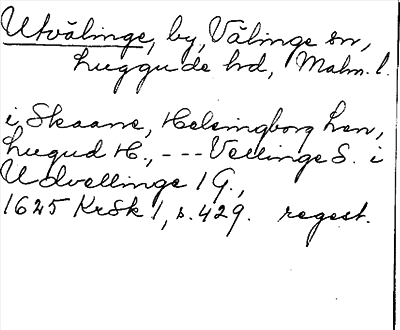 Utvälinge, by, Välinge sn,
Luggude hd, Malm. l.
i Skaane, Helsingborg Len,
Lugud H., --- Vellinge S. i
Udvellinge 1 G.,
1625 KrSk 1, s. 429. regest.